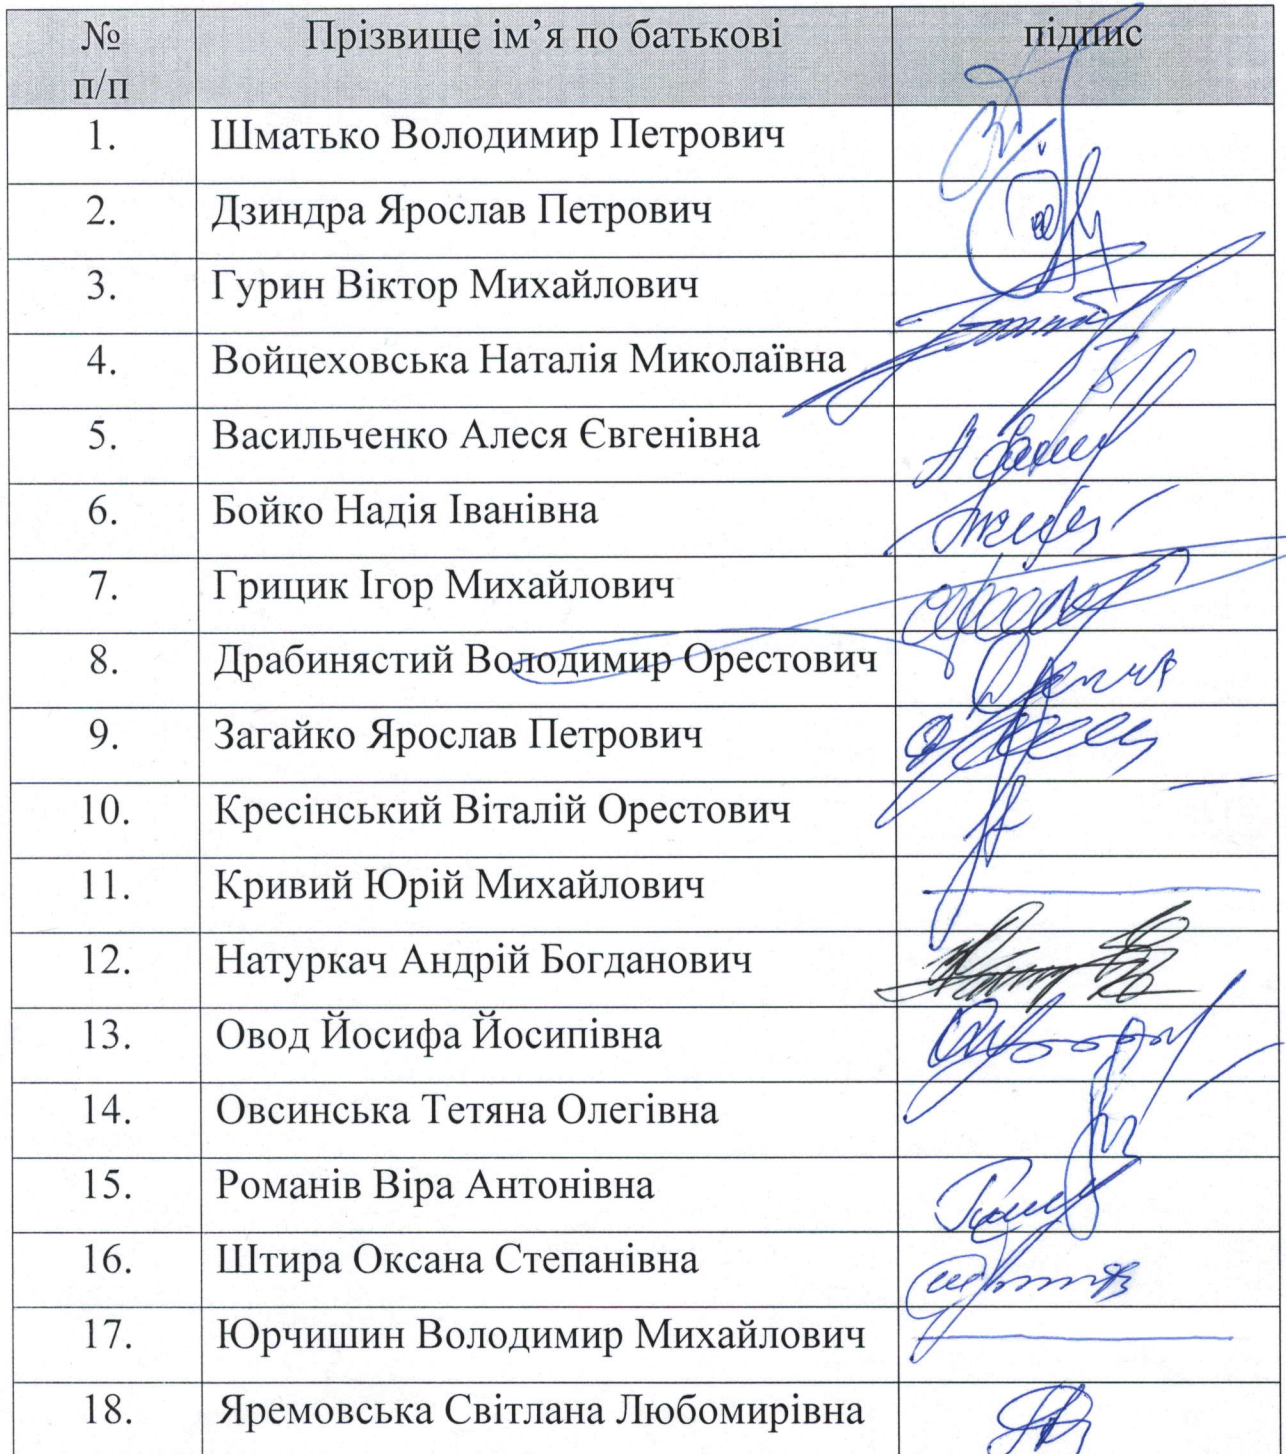 № п/п Прізвище ім’я по батькові підпис
1. Шматько Володимир Петрович
2. Дзиндра Ярослав Петрович
3. Гурин Віктор Михайлович
4. Войцеховська Наталія Миколаївна
5. Васильченко Алеся Євгенівна
6. Бойко Надія Іванівна
7. Грицик Ігор Михайлович
8. Драбинястий Володимир Орестович
9. Загайко Ярослав Петрович
10. Кресінський Віталій Орестович
11. Кривий Юрій Михайлович
12. Натуркач Андрій Богданович
13. Овод Йосифа Йосипівна
14. Овсинська Тетяна Олегівна
15. Романів Віра Антонівна
16. Штира Оксана Степанівна
17. Юрчишин Володимир Михайлович
18. Яремовська Світлана Любомирівна